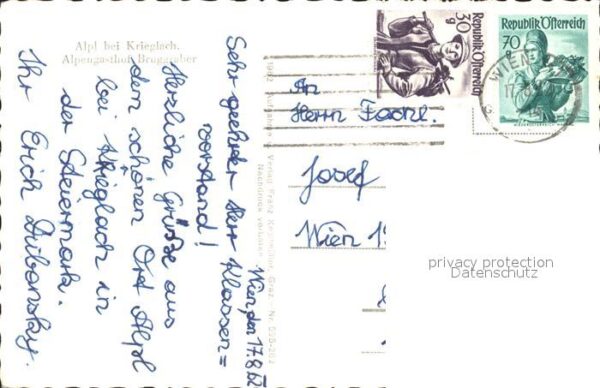 Alpl bei Krieglach.
Alpengasthof Bruggraber
Wien, den 17.8.62
Sehr geehrter Herr Klassen=
vorstand!
Herzliche Grüße aus
dem schönen Ort Alpl
bei Krieglach in
der Steiermark.
Ihr Erich Dubansky.
Verlag Franz Knollmüller, Graz. - Nr.
Nachdruck verboten
30
g
Republik Österreich
Republik Österreich
70
WIEN
An
Herrn Fachl.
Josef
Wien 1
privacy protection
Datenschutz